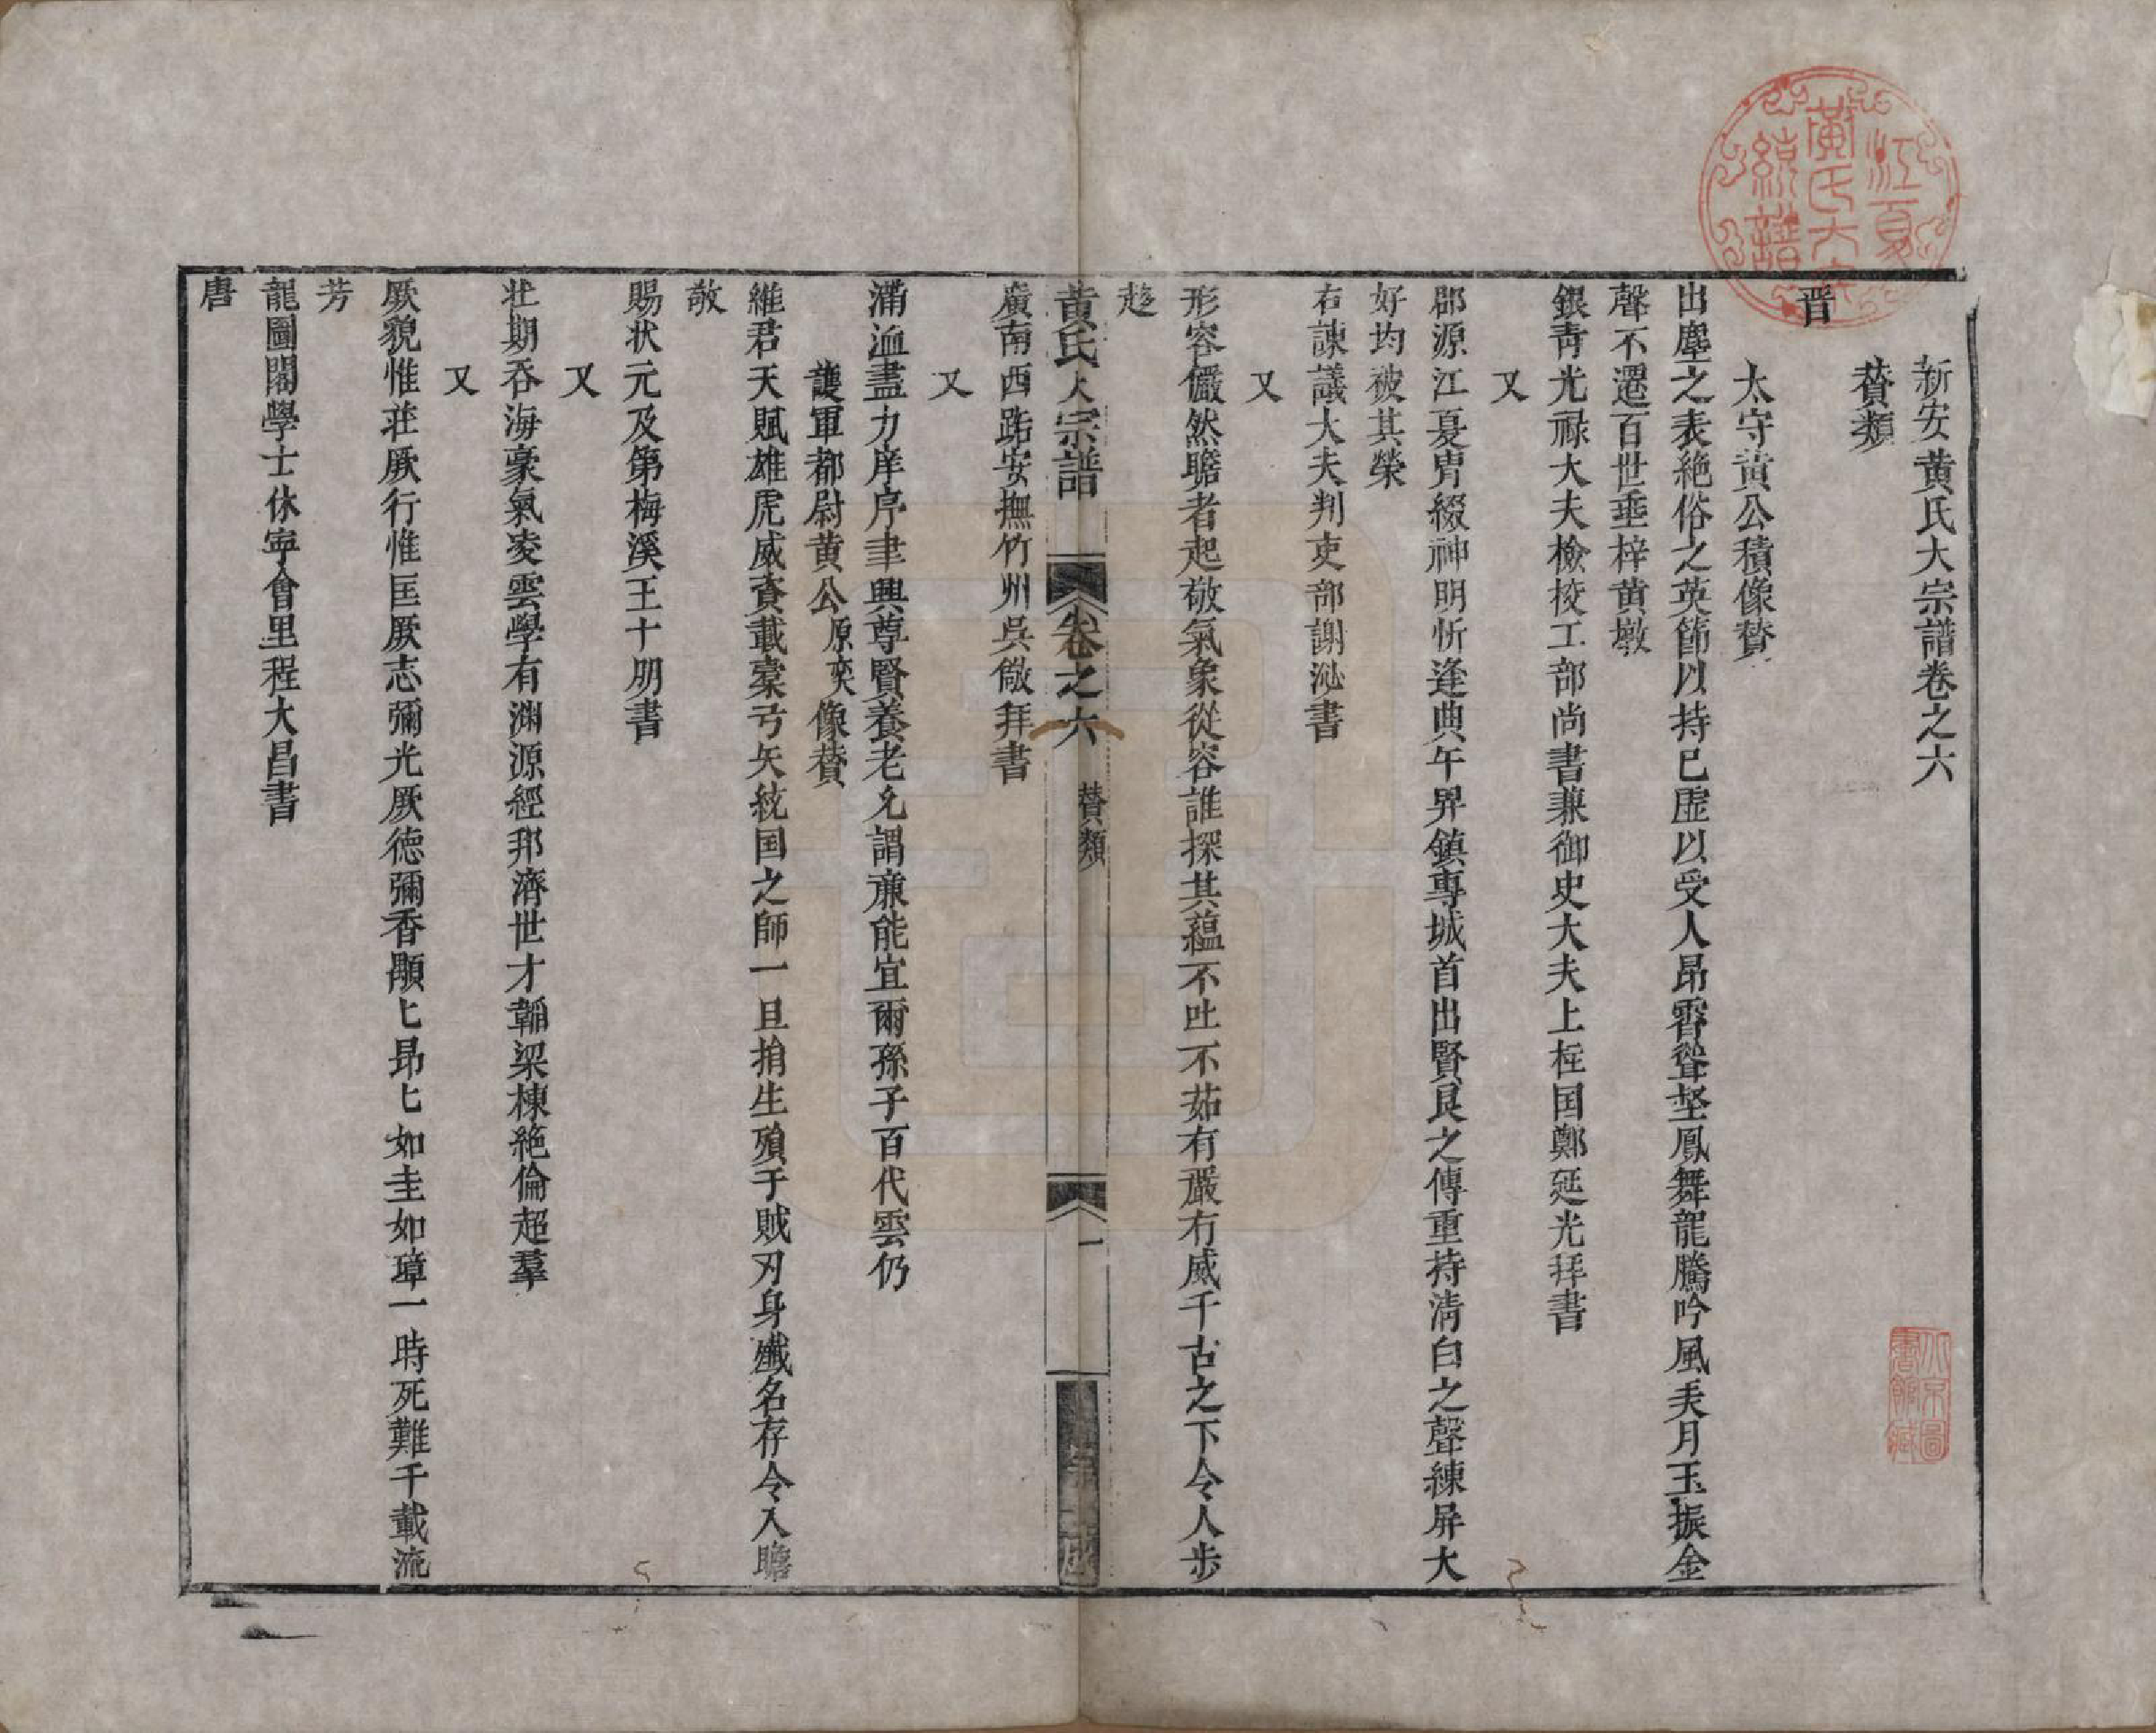 新安黄氏大宗譜卷之六
賛類
晋
太守黃公積像賛
出塵之表絶俗之英節以持己虚以受人昂霄聳壑鳳舞龍騰吟風美月玉振金
聲不遷百世垂梓黄墩
銀青光祿大夫檢校工部尚書兼御史大夫上柱国鄭延光拜書
又
郡源江夏胄綴神明忻逢典午畀鎮專城首出賢良之傳重持清白之聲練屏大
好均被其榮
右諫議大夫判吏部謝泌書
又
形容儼然瞻者起敬氣象從容誰探其蘊不吐不茹有嚴有威千古之下令人歩
趍
黄氏大宗譜
卷之六
賛類
一
廣南西路安撫竹州吳儆拜書
又
溝洫盡力庠序聿興尊賢養老允謂亷能宜爾孫子百代雲仍
護軍都尉黄公原奕像賛
維君天賦雄虎威賚載橐弓矢統国之師一旦捐生殞于賊刃身殲名存令入瞻
敬
賜状元及第梅溪王十朋書
又
壮期吞海豪氣凌雲學有渊源經邦濟世才韜梁棟絶倫超羣
又
厥貌惟莊厥行惟匡厥志彌光厥德彌香顒匕昻匕如圭如璋一時死難千載流
芳
龍圖閣學士休寧會里程大昌書
唐
江夏
黃氏大宗
統譜
北京圖
書館藏